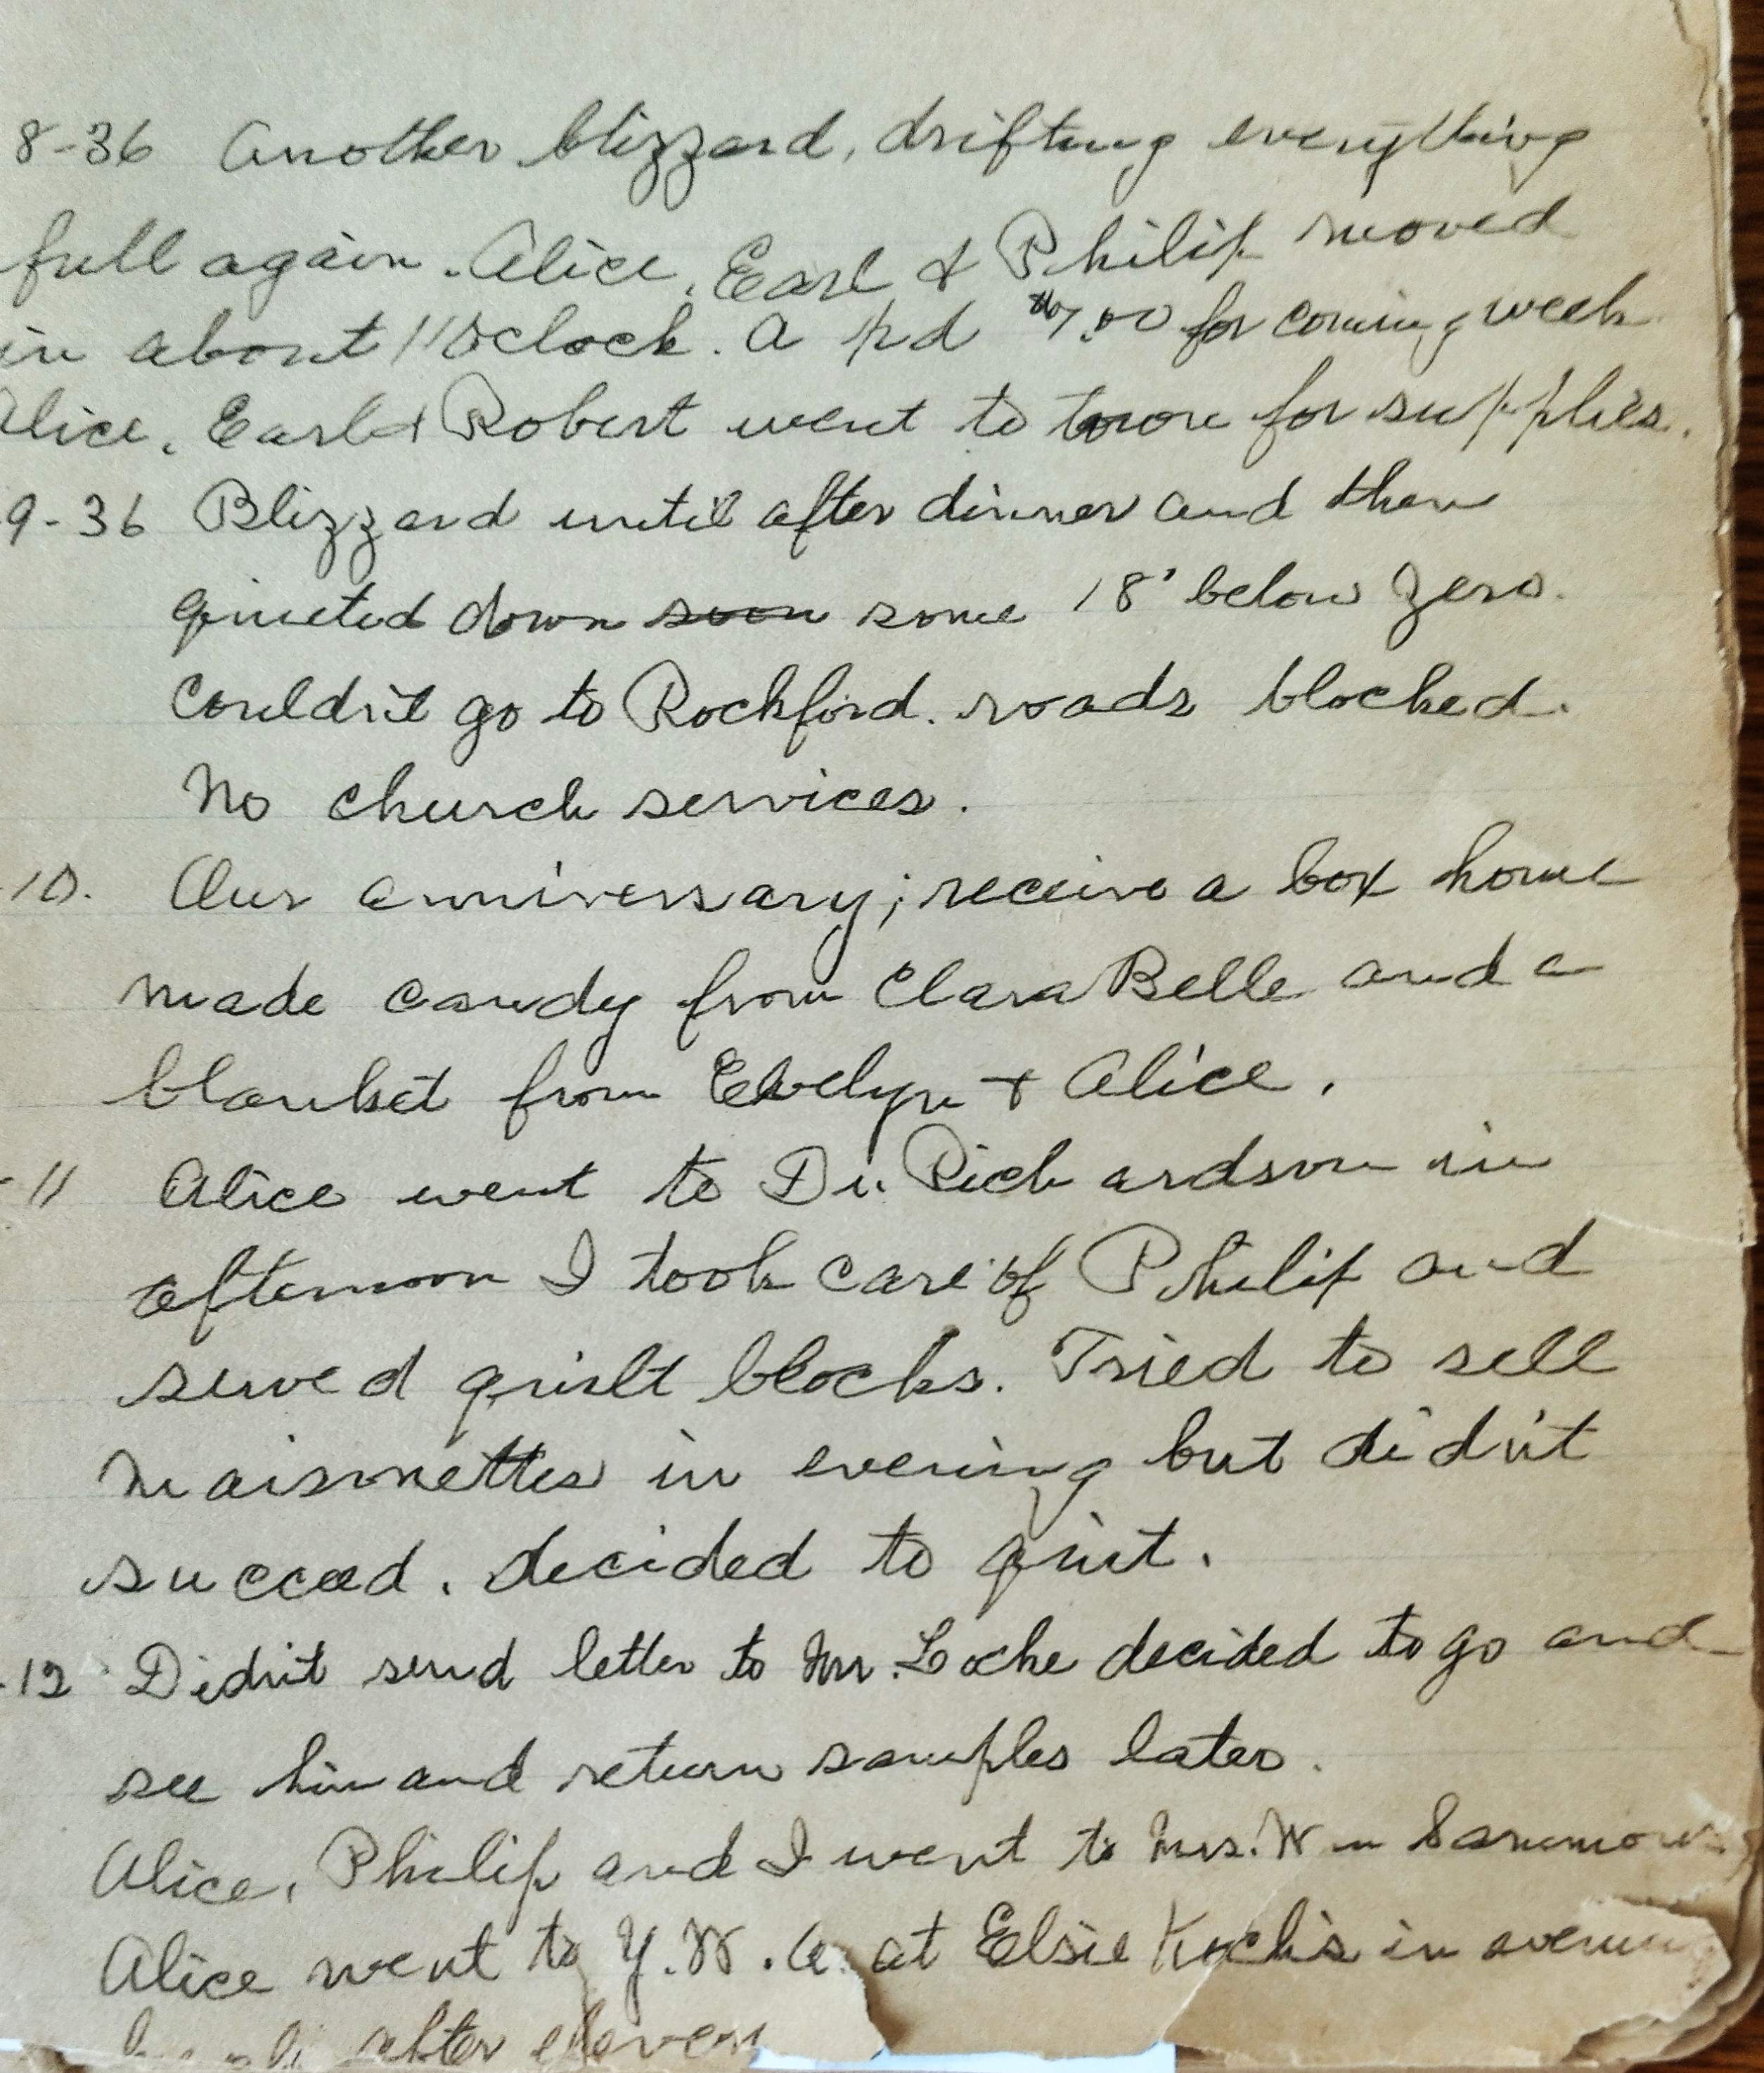 8-36 Another blizzard, drifting everything
full again. Alice, Earl & Philip moved
in about 11 O'clock. A pd $7.00 for coming week
Alice, Earl & Robert went to town for supplies.
9-36 Blizzard until after dinner and then
quieted down soon some 18° below zero.
Couldn't go to Rockford. roads blocked.
No church services.
10. Our anniversary; receive a box home
made candy from Clara Belle and a
blanket from Evelyn + Alice.
-11 Alice went to Dr. Richardson in
afternoon I took care of Philip and
sewed quilt blocks. Tried to sell
Maisonettes in evening but didn't
succeed. decided to quit.
-12 Didn't send letter to Mr. Locke decided to go and
see him and return samples later.
Alice, Philip and I went to Mrs. Wm
Alice went to Y.W. at Elsie Koch's in evening
after eleven